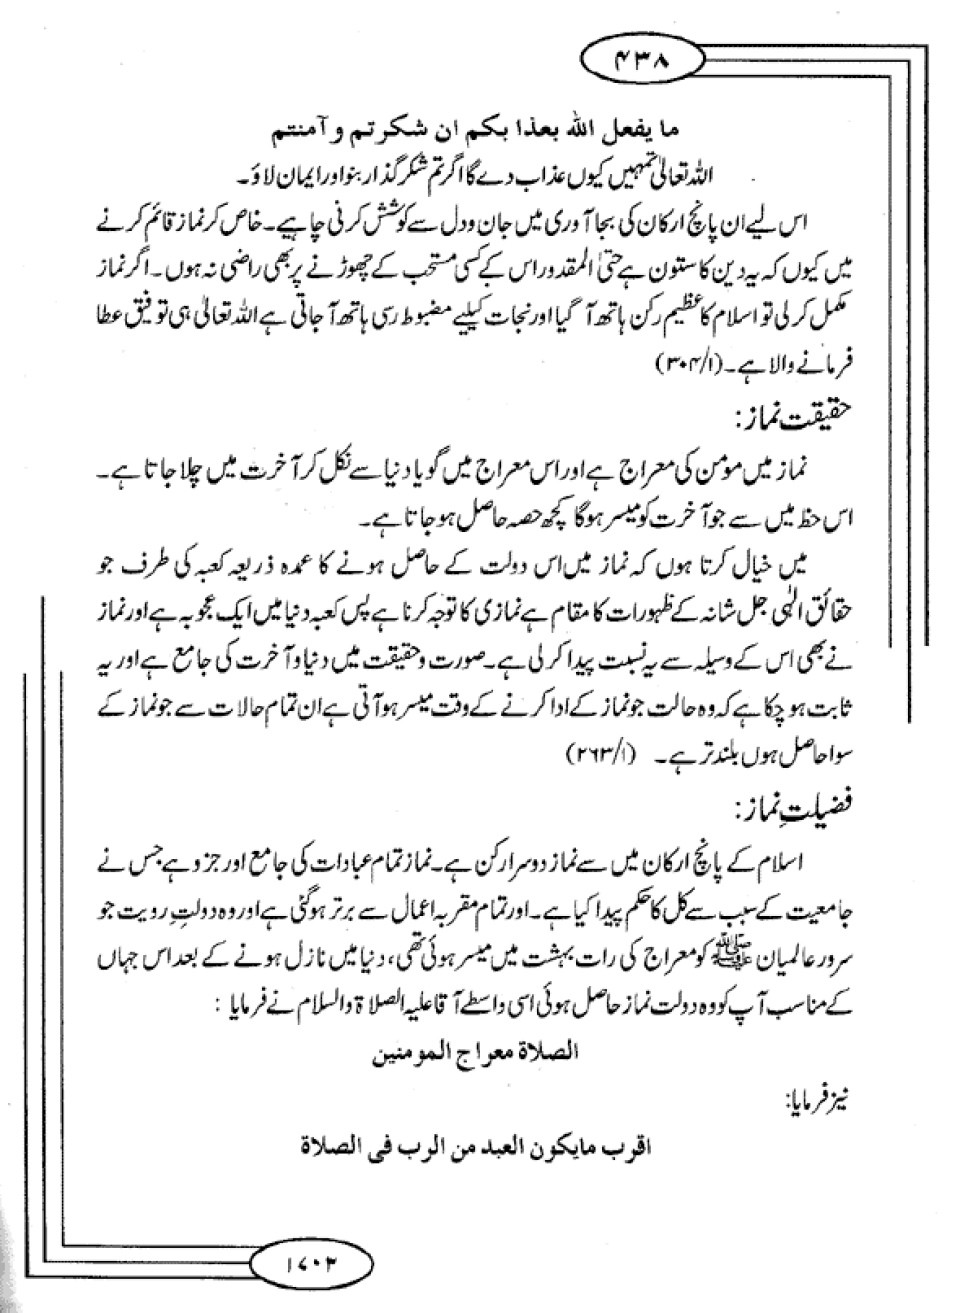 ۴۳۸
ما یفعل اللہ بعذا بکم ان شکرتم و آمنتم
اللہ تعالیٰ تمہیں کیوں عذاب دے گا اگر تم شکر گذار بنو اور ایمان لاؤ۔
اس لیے ان پانچ ارکان کی بجا آوری میں جان و دل سے کوشش کرنی چاہیے۔ خاص کر نماز قائم کرنے
میں کیوں کہ یہ دین کا ستون ہے حتیٰ المقدور اس کے کسی مستحب کے چھوڑنے پر بھی راضی نہ ہوں۔ اگر نماز
مکمل کر لی تو اسلام کا عظیم رکن ہاتھ آ گیا اور نجات کیلیے مضبوط رسی ہاتھ آ جاتی ہے اللہ تعالیٰ ہی توفیق عطا
فرمانے والا ہے۔ (۳۰۴/۱)
حقیقت نماز:
نماز میں مومن کی معراج ہے اور اس معراج میں گویا دنیا سے نکل کر آخرت میں چلا جاتا ہے۔
اس حظ میں سے جو آخرت کو میسر ہوگا کچھ حصہ حاصل ہو جاتا ہے۔
میں خیال کرتا ہوں کہ نماز میں اس دولت کے حاصل ہونے کا عمدہ ذریعہ کعبہ کی طرف جو
حقائق الٰہی جل شانہ کے ظہورات کا مقام ہے نمازی کا توجہ کرنا ہے پس کعبہ دنیا میں ایک عجوبہ ہے اور نماز
نے بھی اس کے وسیلہ سے یہ نسبت پیدا کر لی ہے۔ صورت و حقیقت میں دنیا و آخرت کی جامع ہے اور یہ
ثابت ہو چکا ہے کہ وہ حالت جو نماز کے ادا کرنے کے وقت میسر ہو آتی ہے ان تمام حالات سے جو نماز کے
سوا حاصل ہوں بلند تر ہے۔ (۲۶۳/۱)
فضیلتِ نماز:
اسلام کے پانچ ارکان میں سے نماز دوسرا رکن ہے۔ نماز تمام عبادات کی جامع اور جزو ہے جس نے
جامعیت کے سبب سے کل کا حکم پیدا کیا ہے۔ اور تمام مقربہ اعمال سے برتر ہو گئی ہے اور وہ دولتِ رویت جو
سرور عالمیان ﷺ کو معراج کی رات بہشت میں میسر ہوئی تھی، دنیا میں نازل ہونے کے بعد اس جہاں
کے مناسب آپ کو وہ دولت نماز حاصل ہوئی اسی واسطے آقا علیہ الصلاۃ والسلام نے فرمایا :
الصلاة معراج المومنین
نیز فرمایا:
اقرب مایکون العبد من الرب فی الصلاة
۱۷۰۳